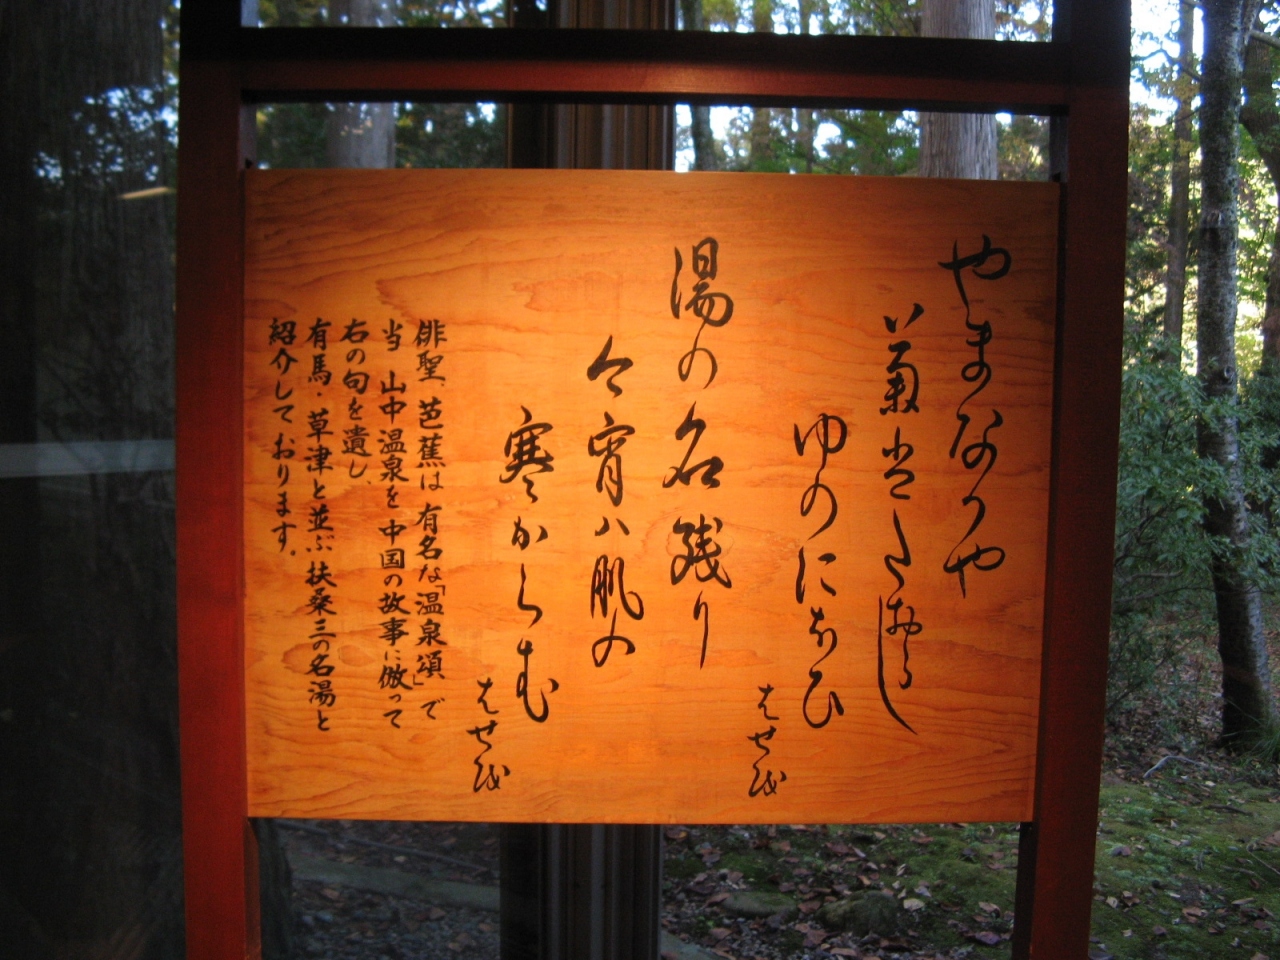 やまなかや
菊はたおらし
ゆのにほひ
はせを
湯の名残り
今宵ハ肌の
寒からむ
はせを
俳聖、芭蕉は 有名な「温泉頌」で
当 山中温泉を 中国の故事に倣って
右の句を遺し、
有馬・草津と並ぶ 扶桑三の名湯と
紹介しております。